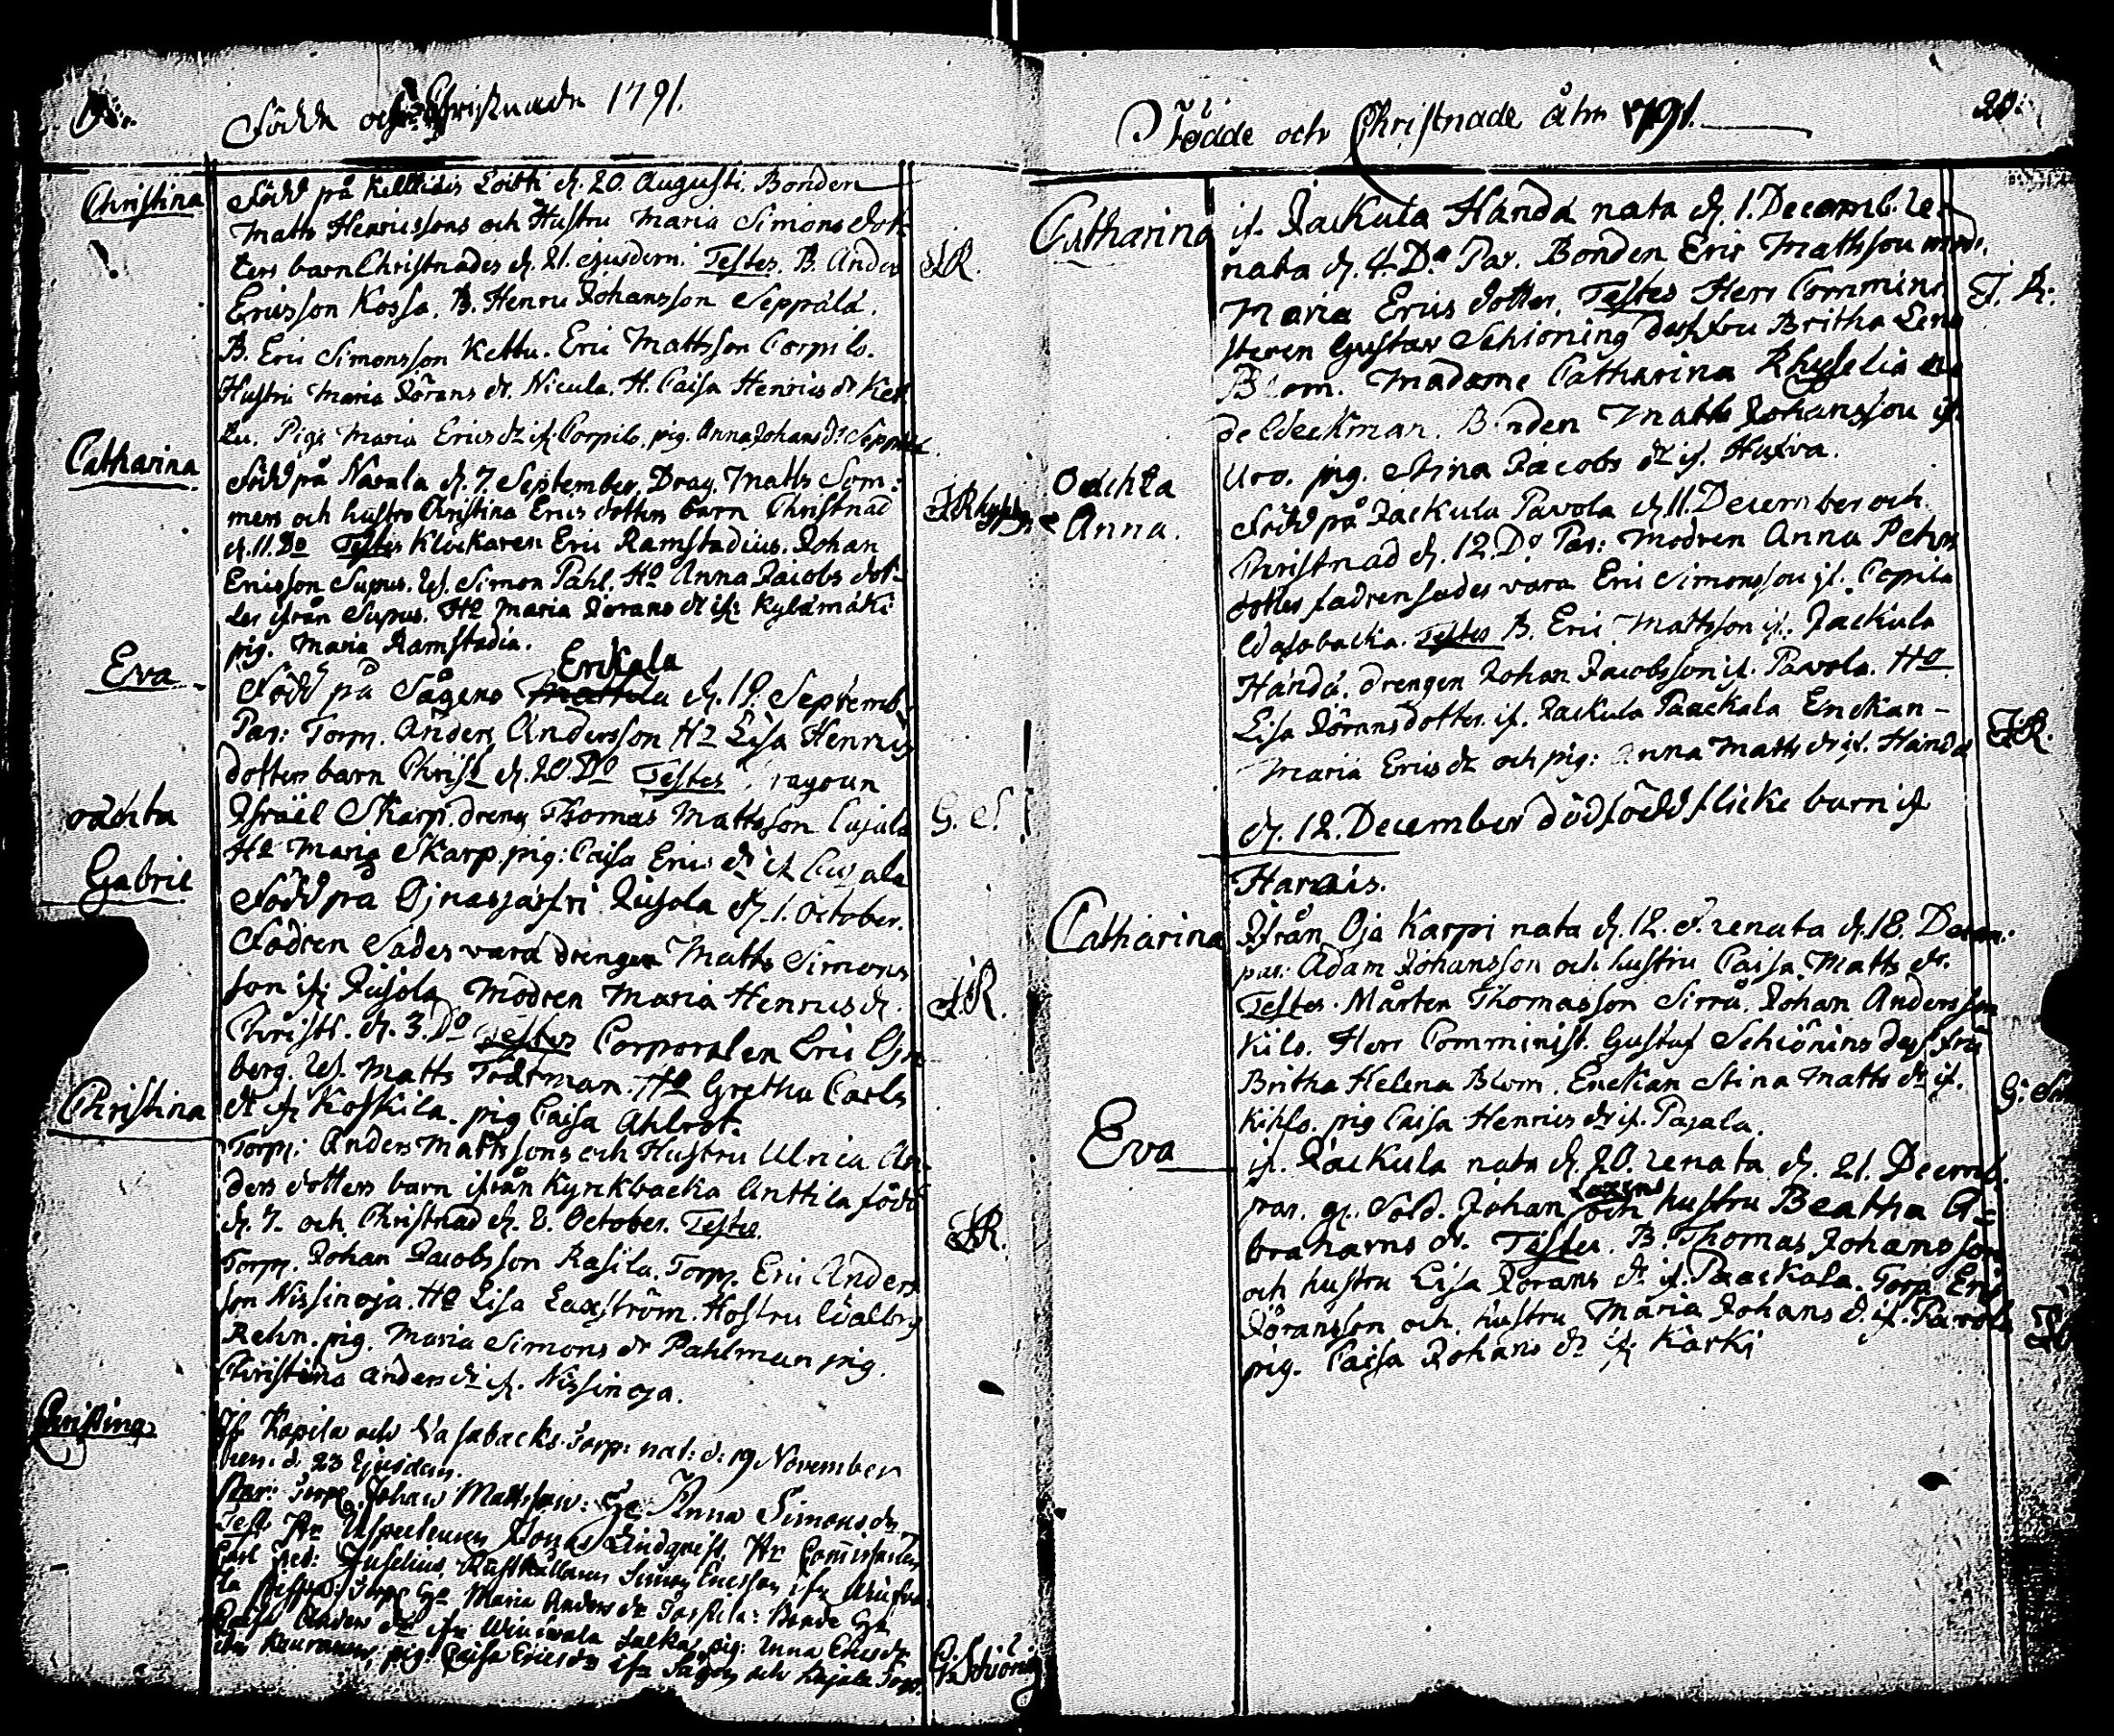 Födde och Christnade 1791.
Christina
Född på Kellidis Loitti d. 20. Augusti. Bonden
Matts Henricssons och Hustru Maria Simons dot-
ters barn Christnades d. 21. ejusdem. Testes. B. Anders
J.R.
Ericsson Kossa. B. Henric Johansson Seppälä.
B. Eric Simonsson Kettu. Eric Mattsson Corpilo.
Hustru Maria Jörans dr. Nicula. H. Caisa Henrics dr Ket-
tu. Piga Maria Erics dr if. Corpilo, pig. Anna Johans dr Seppälä
Catharina
Född på Narala d. 7. September. Drag. Matts Som-
mers och hustru Christina Erics dotters barn Christnad
d. 11. Do Testes Klockaren Eric Ramstadius. Johan
Ericsson Supus. Simon Pahl. Ho Anna Jacobs dot-
ter ifrån Supus. Ho Maria Jörans dr if. Kylämäki
pig. Maria Ramstadia.
Eva
Erickala
Född på Sågens Mattila d. 19. Septemb.
Par: Torp. Anders Andersson Ho Lisa Henrics
dotters barn Christ d. 20. Do Testes Dragoun
oächta
Israël Skarp. dreng Thomas Mattsson Cujala
G. S.
Ho Maria Skarp. pig: Caisa Erics dr if Cujala
Gabriel
Född på Ojnasjärfvi Jusola d. 1. October.
Fadren Sades vara drengen Matts Simons
son if. Jusola Modren Maria Henrics dr.
J.R.
Christ. d. 3. Do Testes Corporalen Eric Ojn-
berg. Matts Trätman. Ho Gretha Carls
dr if Koskila. pig Caisa Ahlrot.
Christina
Torp: Anders Mattssons och Hustru Ulrica An-
ders dotters barn ifrån Kyrckbacka Anttila född
d. 7. och Christnad d. 8. October. Testes.
J.R.
Torp. Johan Jacobsson Rasila. Torp. Eric Anders-
son Nissinoja. Ho Lisa Laxström. Hostru Walborg
Rehn. pig. Maria Simons dr Pahlman pig.
Christina Anders dr if. Nissinoja.
Christina
If Kopila och Vasabacka Torp: nat: d: 19 November
ren: d. 23 Ejusdem.
Par: Torp. Johan Mattsson: Anna Simons dr
Test. Hr Inspectoren Jonas Lindqvist, Hr
Carl Juselius, Rusthållaren Simon Ericsson
Maria Anders dr
Caisa Anders dr Anna Erics dr
pig: Caisa Erics dr och Kujala Torp.
G. Schiöning
Födde och Christnade åhr 1791.
20:
Catharina
if. Jackula Händä nata d. 1. Decemb. re-
nata d. 4. Do Par. Bonden Eric Mattsson mod.
Maria Erics dotter. Testes Herr Commini-
J. R.
steren Gustav Schiöning dess fru Britha Lena
Blom. Madame Catharina Rhyselia
Weckman. Bonden Matts Johansson if.
Uro. pig. Stina Jacobs dr if. Huſva.
Oächta
Anna.
Född på Jackula Pavola d. 11. December och
Christnad d. 12. Do Par: Modren Anna Pehrs
dotter fadren sades vara Eric Simonsson if. Copila
Wasabacka. Testes B. Eric Mattsson if. Jackula
Händä. drengen Johan Jacobsson if. Pavola. Ho
Lisa Jöransdotter. if. Jackula Paackala Enckan-
J.R.
Maria Erics dr och pig: Anna Matts dr if. Händä
d. 12. December dödfödd flicke barn if
Harais.
Catharina
Ifrån Oja Karpi nata d. 12. & renata d. 18. Decem:
par: Adam Johansson och hustru Caisa Matts dr.
Testes. Mårten Thomasson Sirrå. Johan Andersson
Kilo. Herr Comminist. Gustaf Schiönins dess fru
Britha Helena Blom. Enckan Stina Matts dr if.
G: Sch
Kihlo. pig Caisa Henrics dr if. Pajala.
Eva
if. Jackula nata d. 20. renata d. 21. Decemb.
par. Sold. Johan och hustru Beatha A-
brahams dr. Testes. B. Thomas Johansson
och hustru Lisa Jörans dr if. Paackala. Torp. Eric
Jöransson och hustru Maria Johans d. if. Pavola
pig. Caisa Johans dr if Karki